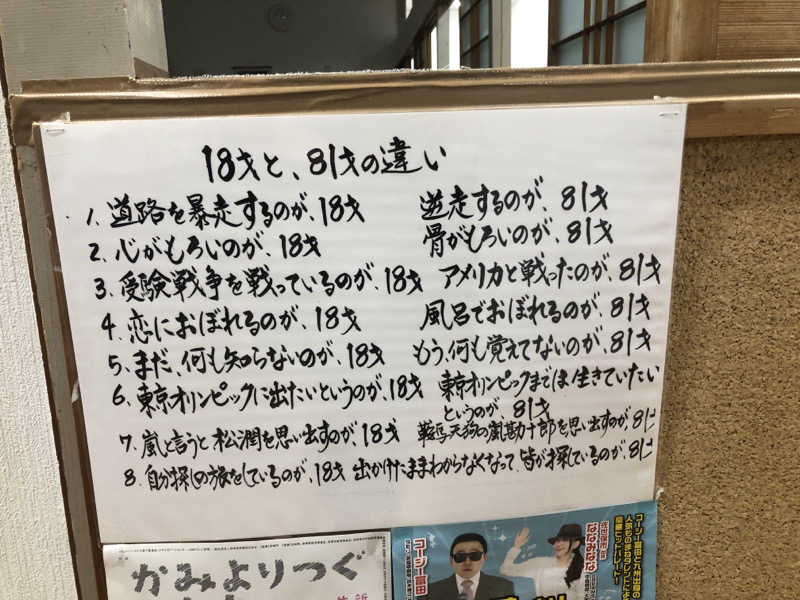 18才と、81才の違い
1. 道路を暴走するのが、18才　逆走するのが、81才
2. 心がもろいのが、18才　骨がもろいのが、81才
3. 受験戦争を戦っているのが、18才　アメリカと戦ったのが、81才
4. 恋におぼれるのが、18才　風呂でおぼれるのが、81才
5. まだ、何も知らないのが、18才　もう、何も覚えてないのが、81才
6. 東京オリンピックに出たいというのが、18才　東京オリンピックまでは生きていたい
というのが、81才
7. 嵐と言うと松潤を思い出すのが、18才　鞍馬天狗の嵐勘十郎を思い出すのが、81才
8. 自分探しの旅をしているのが、18才　出かけたままわからなくなって、皆が探しているのが、81才
かみよりつぐ
コージー冨田
佐世保市出身
ななみなな
コージー冨田と九州出身の
人気ものまねタレントによる
爆笑ヒットパレード!